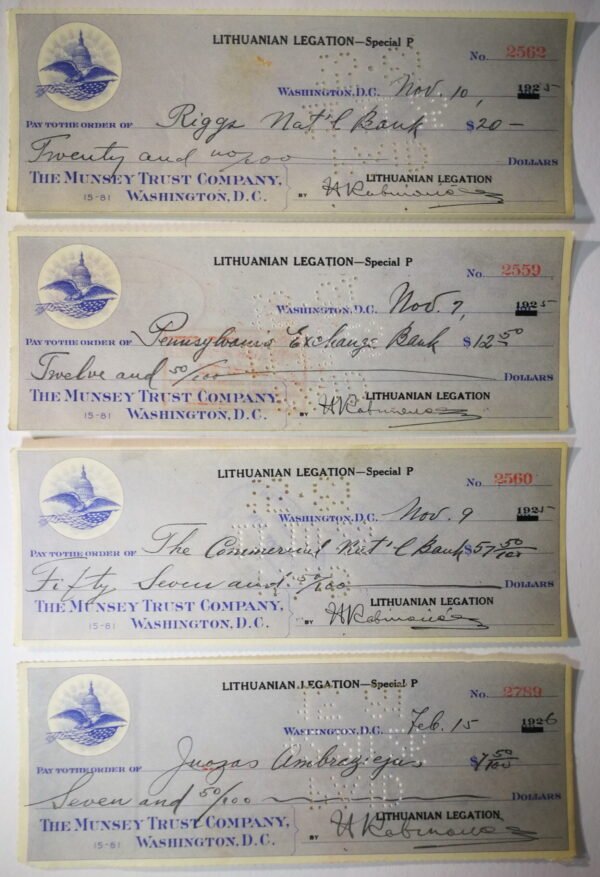 LITHUANIAN LEGATION—Special P
No. 2562
WASHINGTON, D.C. Nov. 10, 1925
PAY TO THE ORDER OF Riggs Nat'l Bank $20—
Twenty and no/100 DOLLARS
THE MUNSEY TRUST COMPANY, LITHUANIAN LEGATION
15-81 WASHINGTON, D.C. BY
LITHUANIAN LEGATION—Special P
No. 2559
WASHINGTON, D.C. Nov. 7, 1925
PAY TO THE ORDER OF Pennsylvania Exchange Bank $12 50
Twelve and 50/100 DOLLARS
THE MUNSEY TRUST COMPANY, LITHUANIAN LEGATION
15-81 WASHINGTON, D.C. BY
LITHUANIAN LEGATION—Special P
No. 2560
WASHINGTON, D.C. Nov. 9 1925
PAY TO THE ORDER OF The Commercial Nat'l Bank $57 50/100
Fifty Seven and 50/100 DOLLARS
THE MUNSEY TRUST COMPANY, LITHUANIAN LEGATION
15-81 WASHINGTON, D.C. BY
LITHUANIAN LEGATION—Special P
No. 2789
WASHINGTON, D.C. Feb. 15 1926
PAY TO THE ORDER OF Juozas Ambraziejus $7 50/100
Seven and 50/100 DOLLARS
THE MUNSEY TRUST COMPANY, LITHUANIAN LEGATION
15-81 WASHINGTON, D.C. BY